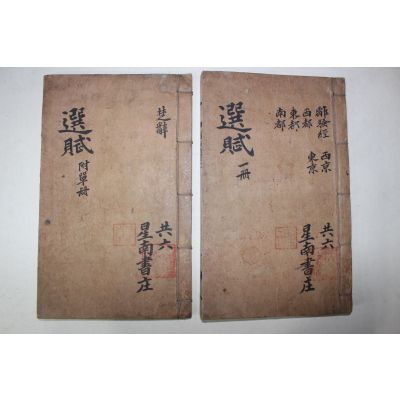 選賦
附單册
楚辭
共六
星南書庄
選賦
一册
離騷經
西都
東都
南都
西京
東京
共六
星南書庄